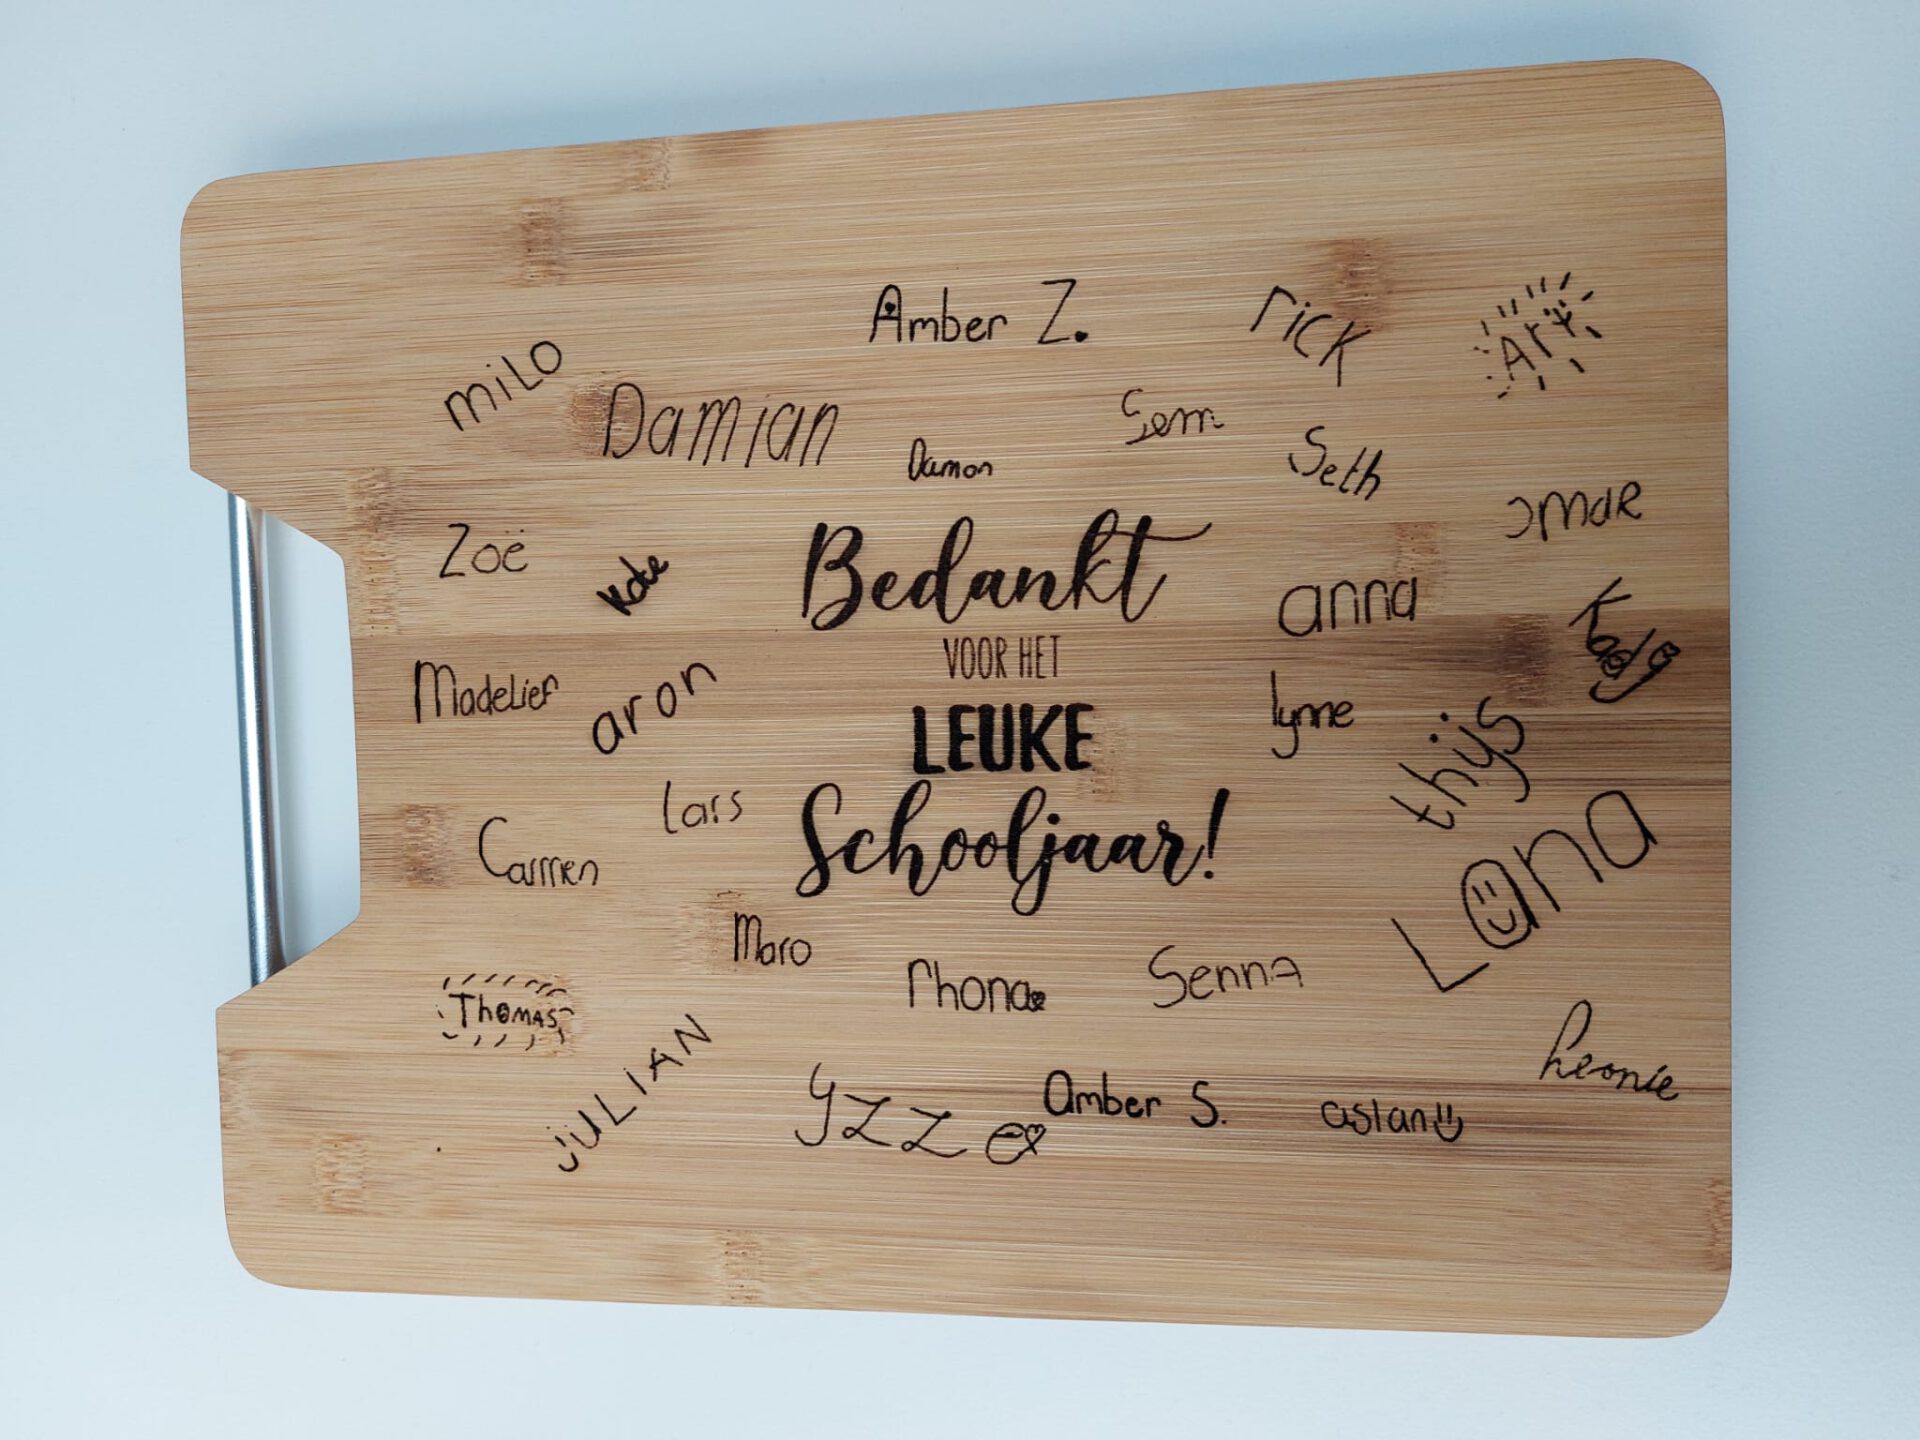 Amber Z.
rick
Ari
miLO
Damian
Sem
Damon
Seth
omaR
Zoë
Kate
Bedankt
anna
VOOR HET
Madelief
aron
lynne
thijs
LEUKE
Lars
Schooljaar!
Carmen
Lana
Moro
Rhona
SennA
ThOMAS
jULIAN
Leonie
yzze
Amber S.
aslan